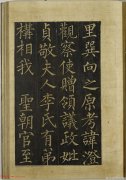 里巽向之原考諱澄
觀察使贈領議政妣
貞敬夫人李氏有弟
構相我 聖朝官至